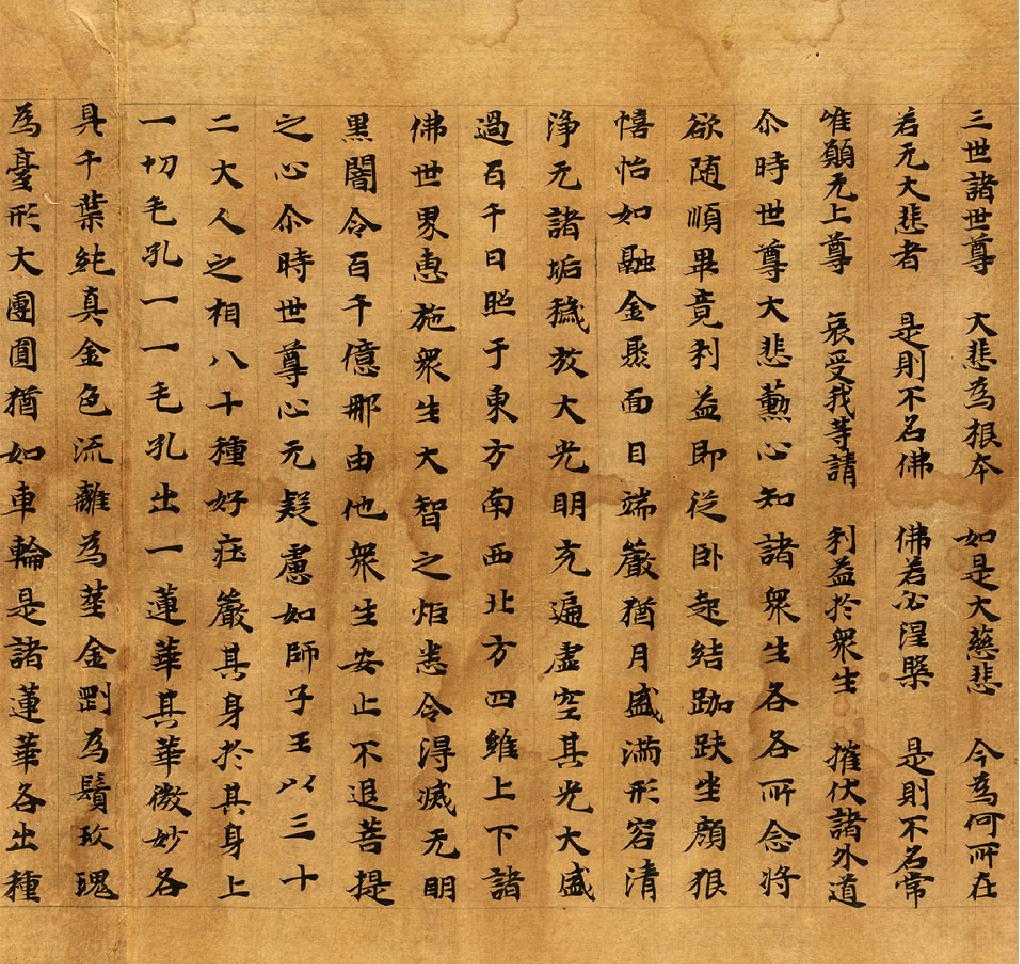 三世諸世尊　大悲為根本　如是大慈悲　今為何所在
若无大悲者　是則不名佛　佛若必涅槃　是則不名常
唯願无上尊　哀受我等請　利益於衆生　摧伏諸外道
尒時世尊大悲勳心知諸衆生各各所念将
欲随順畢竟利益即従卧起結跏趺坐顔狠
憘怡如融金聚面目端嚴猶月盛滿形容清
浄无諸垢穢放大光明充遍虛空其光大盛
過百千日照于東方南西北方四維上下諸
佛世界惠施衆生大智之炬悉令得滅无明
黒闇令百千億那由他衆生安止不退菩提
之心尒時世尊心无疑慮如師子王以三十
二大人之相八十種好庄嚴其身於其身上
一切毛孔一一毛孔出一蓮華其華微妙各
具千葉純真金色流離為莖金剛為鬚玫瑰
為臺形大團圓猶如車輪是諸蓮華各出種